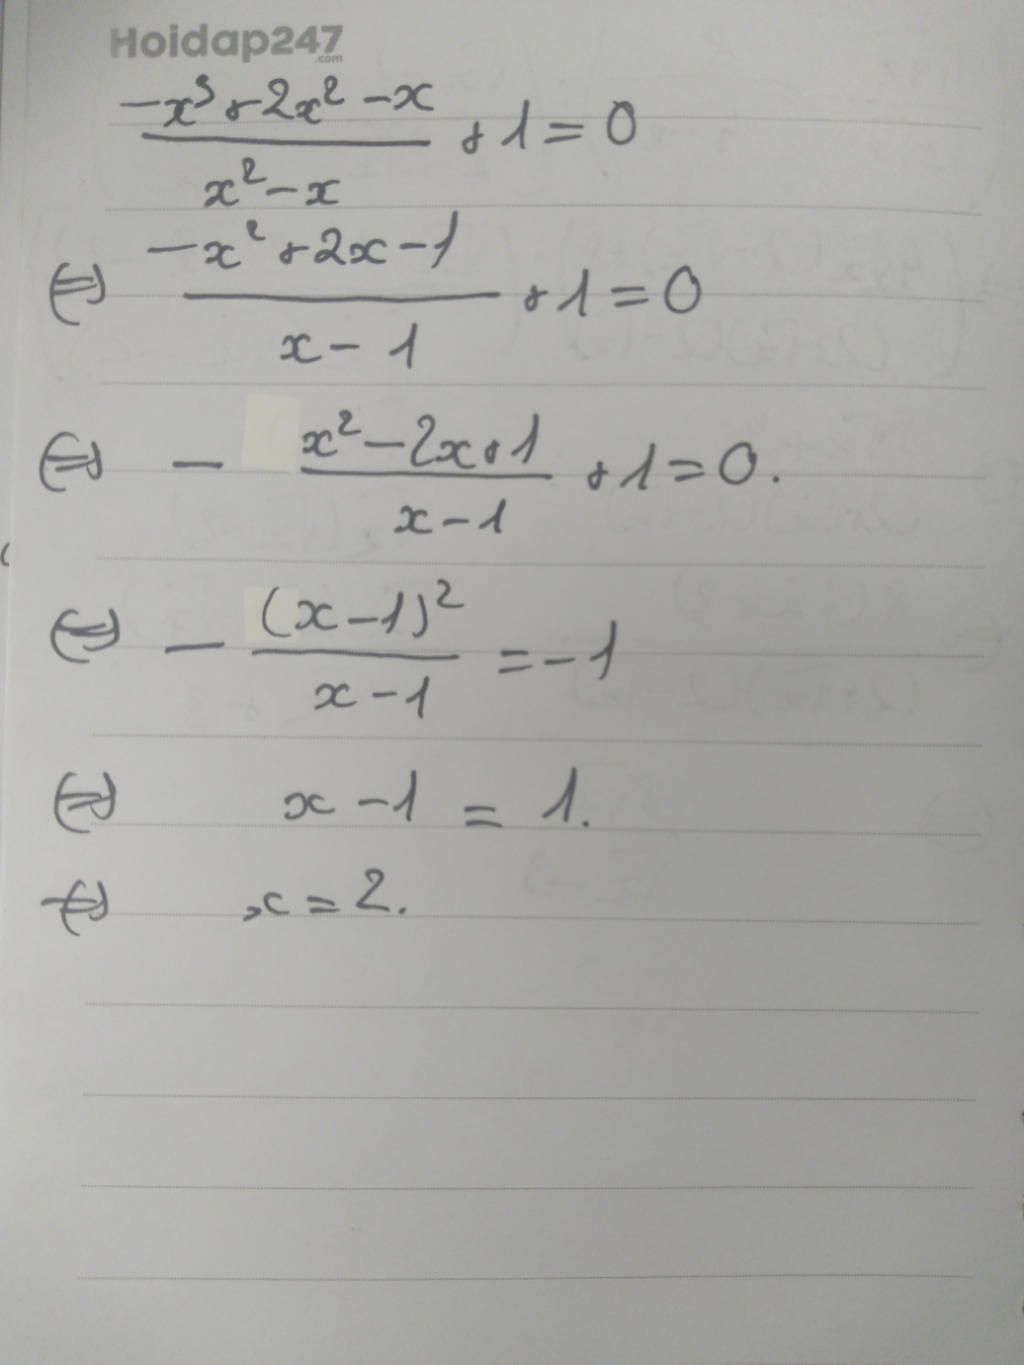 Hoidap247
.com
-x³+2x²-x / x²-x +1=0
⇔ -x²+2x-1 / x-1 +1=0
⇔ - x²-2x+1 / x-1 +1=0.
⇔ - (x-1)² / x-1 =-1
⇔ x-1 = 1.
⇔ x=2.